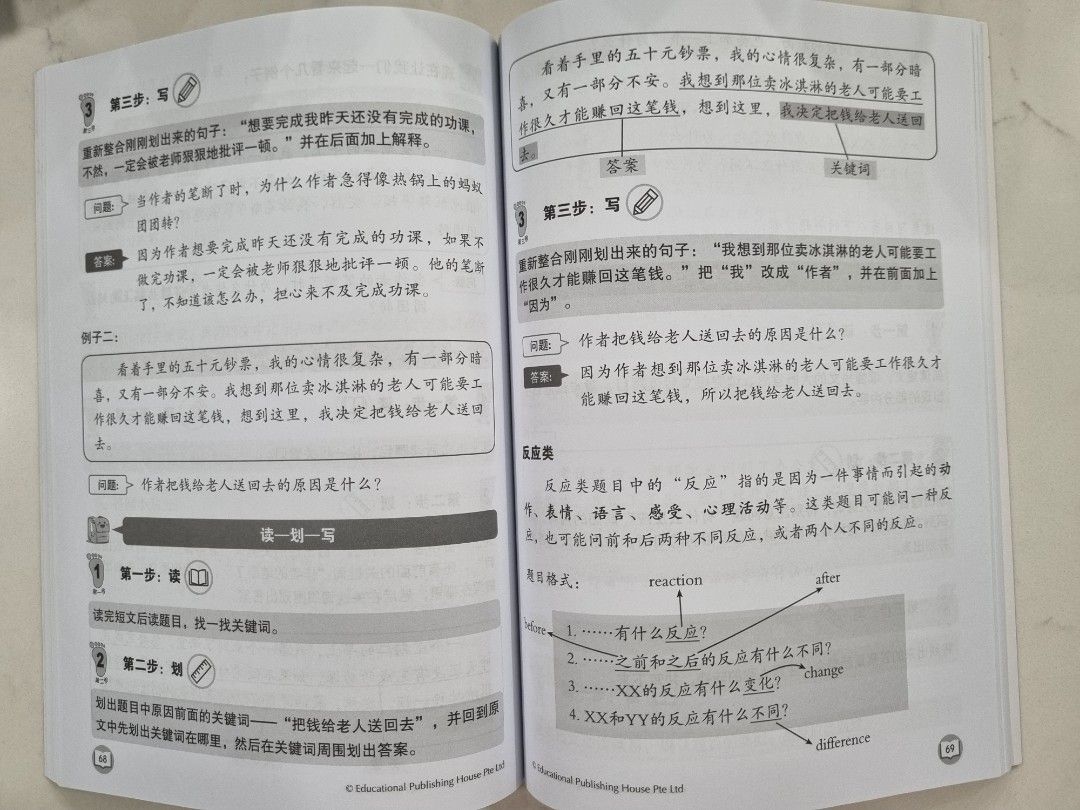 3 第三步：写
重新整合刚刚划出来的句子：“想要完成我昨天还没有完成的功课，
不然，一定会被老师狠狠地批评一顿。”并在后面加上解释。
问题： 当作者的笔断了时，为什么作者急得像热锅上的蚂蚁
团团转？
答案： 因为作者想要完成昨天还没有完成的功课，如果不
做完功课，一定会被老师狠狠地批评一顿。他的笔断
了，不知道该怎么办，担心来不及完成功课。
例子二：
看着手里的五十元钞票，我的心情很复杂，有一部分暗
喜，又有一部分不安。我想到那位卖冰淇淋的老人可能要工
作很久才能赚回这笔钱，想到这里，我决定把钱给老人送回
去。
问题： 作者把钱给老人送回去的原因是什么？
读—划—写
1 第一步：读
读完短文后读题目，找一找关键词。
2 第二步：划
划出题目中原因前面的关键词——“把钱给老人送回去”，并回到原
文中先划出关键词在哪里，然后在关键词周围划出答案。
68
© Educational Publishing House Pte Ltd
看着手里的五十元钞票，我的心情很复杂，有一部分暗
喜，又有一部分不安。我想到那位卖冰淇淋的老人可能要工
作很久才能赚回这笔钱，想到这里，我决定把钱给老人送回
去。
答案 关键词
3 第三步：写
重新整合刚刚划出来的句子：“我想到那位卖冰淇淋的老人可能要工
作很久才能赚回这笔钱。”把“我”改成“作者”，并在前面加上
“因为”。
问题： 作者把钱给老人送回去的原因是什么？
答案： 因为作者想到那位卖冰淇淋的老人可能要工作很久才
能赚回这笔钱，所以把钱给老人送回去。
反应类
反应类题目中的“反应”指的是因为一件事情而引起的动
作、表情、语言、感受、心理活动等。这类题目可能问一种反
应，也可能问前和后两种不同反应，或者两个人不同的反应。
题目格式：
reaction
after
before
1. ……有什么反应？
2. ……之前和之后的反应有什么不同？
change
3. ……XX的反应有什么变化？
4. XX和YY的反应有什么不同？
difference
69
© Educational Publishing House Pte Ltd